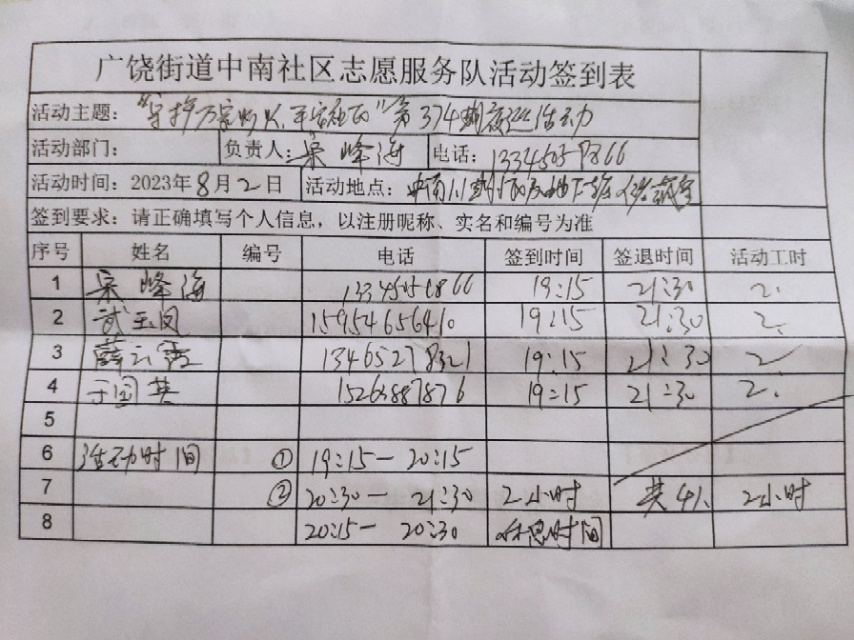 广饶街道中南社区志愿服务队活动签到表
活动主题：“守护万家灯火，平安社区”第374期夜巡活动
活动部门： 负责人：宋峰海 电话：
活动时间：2023年8月2日 活动地点：中南
签到要求：请正确填写个人信息，以注册昵称、实名和编号为准
序号 姓名 编号 电话 签到时间 签退时间 活动工时
1 宋峰海 19:15 21:30 2.
2 武玉凤 19:15 21:30 2.
3 薛云霞 13465278321 19:15 21:30 2
4 于国英 19:15 21:30 2.
5
6 活动时间 ① 19:15一 20:15
7 ② 20:30一 21:30 2小时 共4人 2小时
8 20:15一 20:30 休息时间